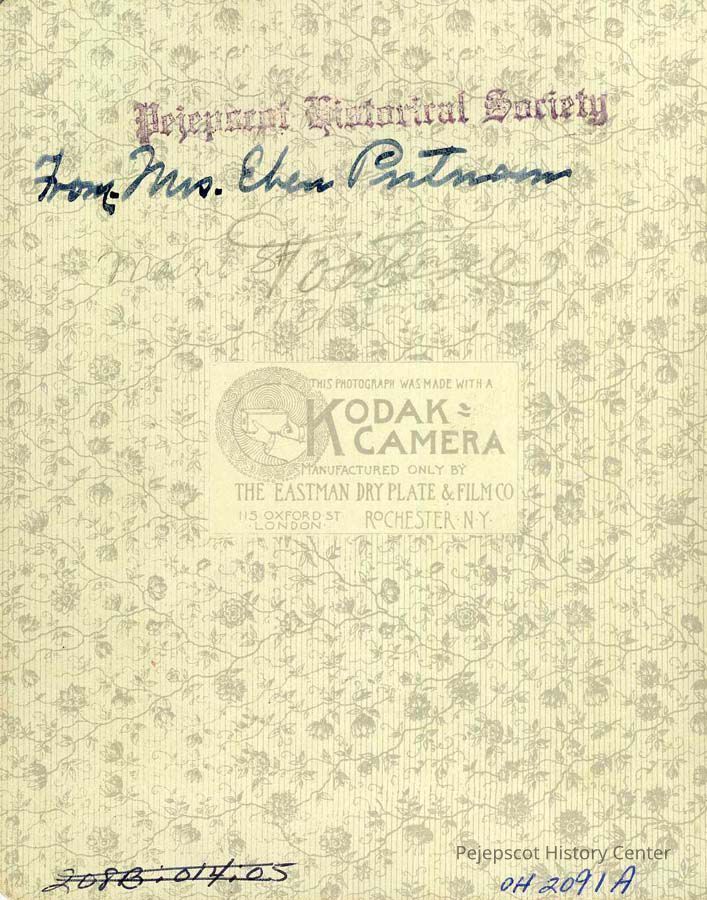 Pejepscot Historical Society
From Mrs. Eben Putnam
Main St
THIS PHOTOGRAPH WAS MADE WITH A
KODAK
CAMERA
MANUFACTURED ONLY BY
THE EASTMAN DRY PLATE & FILM CO
115 OXFORD ST ROCHESTER·N·Y·
LONDON
Pejepscot History Center
208B.014.05
OH 2091A